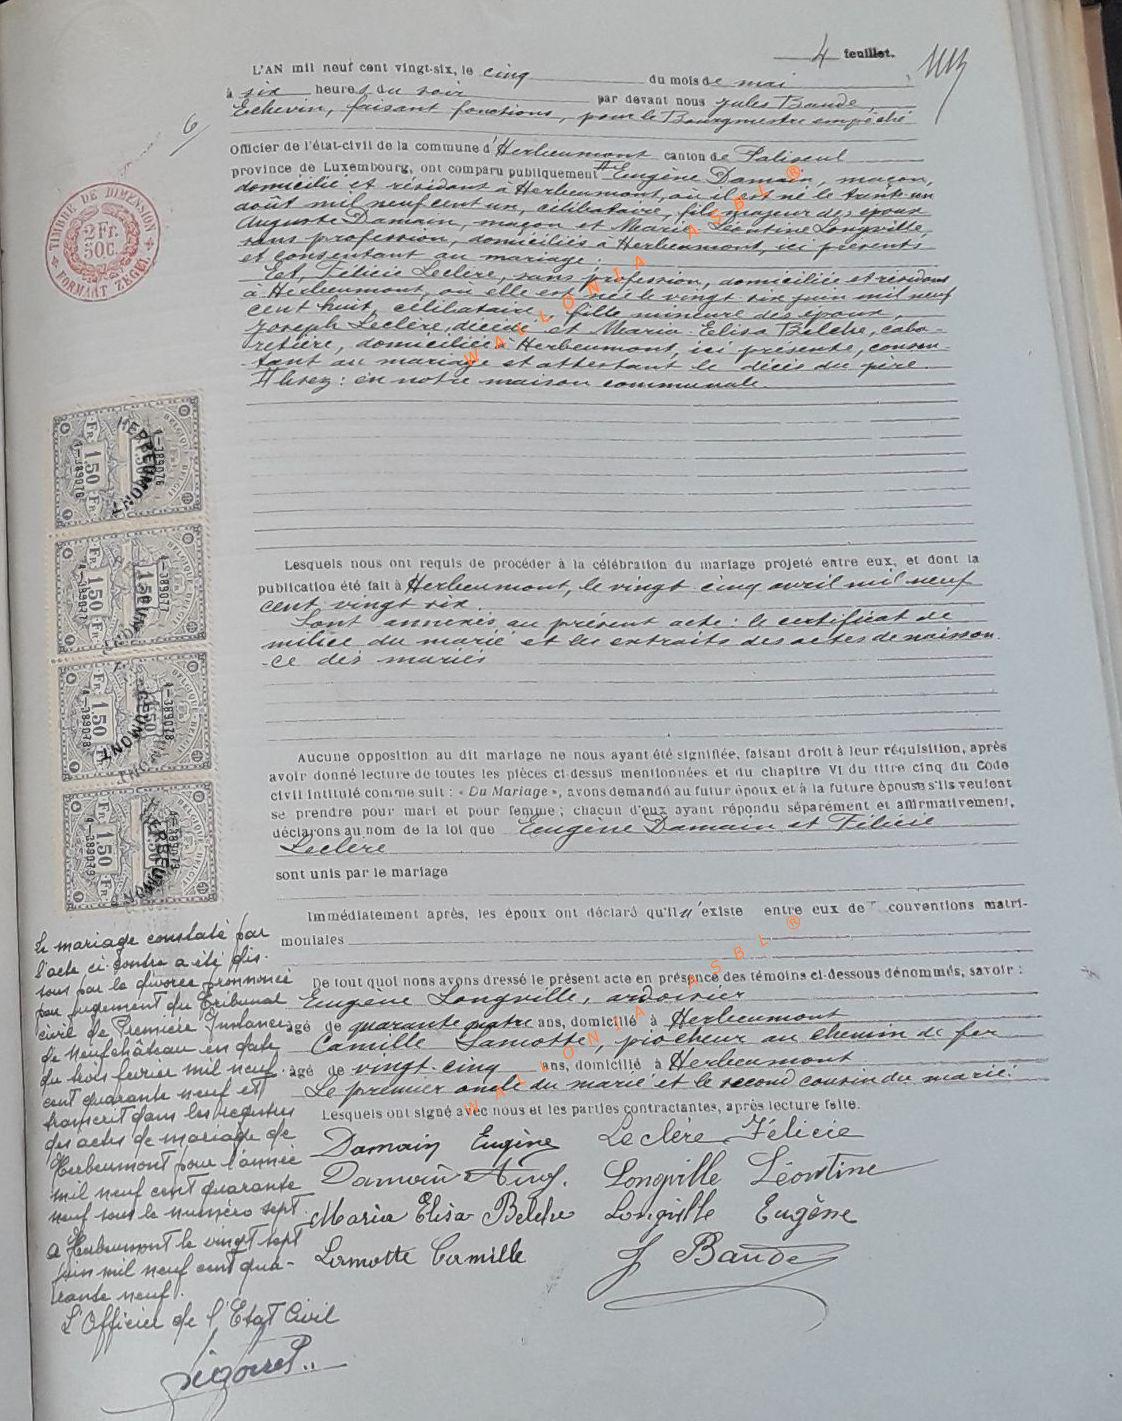 4 feuillet.
L'AN mil neuf cent vingt-six, le cinq du mois de mai
à six heures du soir par devant nous Jules Baude,
Echevin, faisant fonctions, pour le Bourgmestre empêché
6
Officier de l'état-civil de la commune d'Herbeumont canton de Paliseul
province de Luxembourg, ont comparu publiquement # Eugène Damain, maçon,
domicilié et résidant à Herbeumont, où il est né le trente-un
août mil neuf cent un, célibataire, fils majeur des époux
Auguste Damain, maçon et Marie Léontine Longville,
sans profession, domiciliés à Herbeumont, ici présents
et consentant au mariage.
Et, Félicie Leclère, sans profession, domiciliée et résidant
à Herbeumont, où elle est née le vingt six juin mil neuf
cent huit, célibataire, fille mineure des époux,
Joseph Leclère, décédé et Maria Elisa Belche, caba-
retière, domiciliée à Herbeumont, ici présente, consen-
tant au mariage et attestant le décès du père.
# lisez : en notre maison communale
TIMBRE DE DIMENSION
2 Fr.
50C.
FORMANT ZEGEL
HERBEUMONT
1.50 Fr.
4-389076
1.50 Fr.
4-389077
1.50 Fr.
4-389078
1.50 Fr.
4-389079
Lesquels nous ont requis de procéder à la célébration du mariage projeté entre eux, et dont la
publication été fait à Herbeumont, le vingt cinq avril mil neuf
cent vingt six.
Sont annexés au présent acte : le certificat de
milice du marié et les extraits des actes de naissan-
ce des mariés
Aucune opposition au dit mariage ne nous ayant été signifiée, faisant droit à leur réquisition, après
avoir donné lecture de toutes les pièces ci-dessus mentionnées et du chapitre VI du titre cinq du Code
civil intitulé comme suit : « Du Mariage », avons demandé au futur époux et à la future épouse s'ils veulent
se prendre pour mari et pour femme ; chacun d'eux ayant répondu séparément et affirmativement,
déclarons au nom de la loi que Eugène Damain et Félicie
Leclère
sont unis par le mariage
Immédiatement après, les époux ont déclaré qu'il n'existe entre eux de conventions matri-
moniales
De tout quoi nous avons dressé le présent acte en présence des témoins ci-dessous dénommés, savoir :
Eugène Longville, ardoisier
âgé de quarante quatre ans, domicilié à Herbeumont
Camille Lamotte, piocheur au chemin de fer
âgé de vingt-cinq ans, domicilié à Herbeumont
Le premier oncle du marié et le second cousin du marié.
Lesquels ont signé avec nous et les parties contractantes, après lecture faite.
Damain Eugène Leclère Félicie
Damain Aug. Longville Léontine
Maria Elisa Belche Longville Eugène
Lamotte Camille J Baude
Le mariage constaté par
l'acte ci-contre a été dis-
sous par le divorce prononcé
par jugement du Tribunal
civil de Première Instance
de Neufchâteau en date
du trois février mil neuf
cent quarante neuf et
transcrit dans les registres
des actes de mariage de
Herbeumont pour l'année
mil neuf cent quarante
neuf sous le numéro sept.
A Herbeumont le vingt sept
juin mil neuf cent qua-
rante neuf.
L'Officier de l'Etat Civil
WALLONIA ASBL ®
WALLONIA ASBL ®